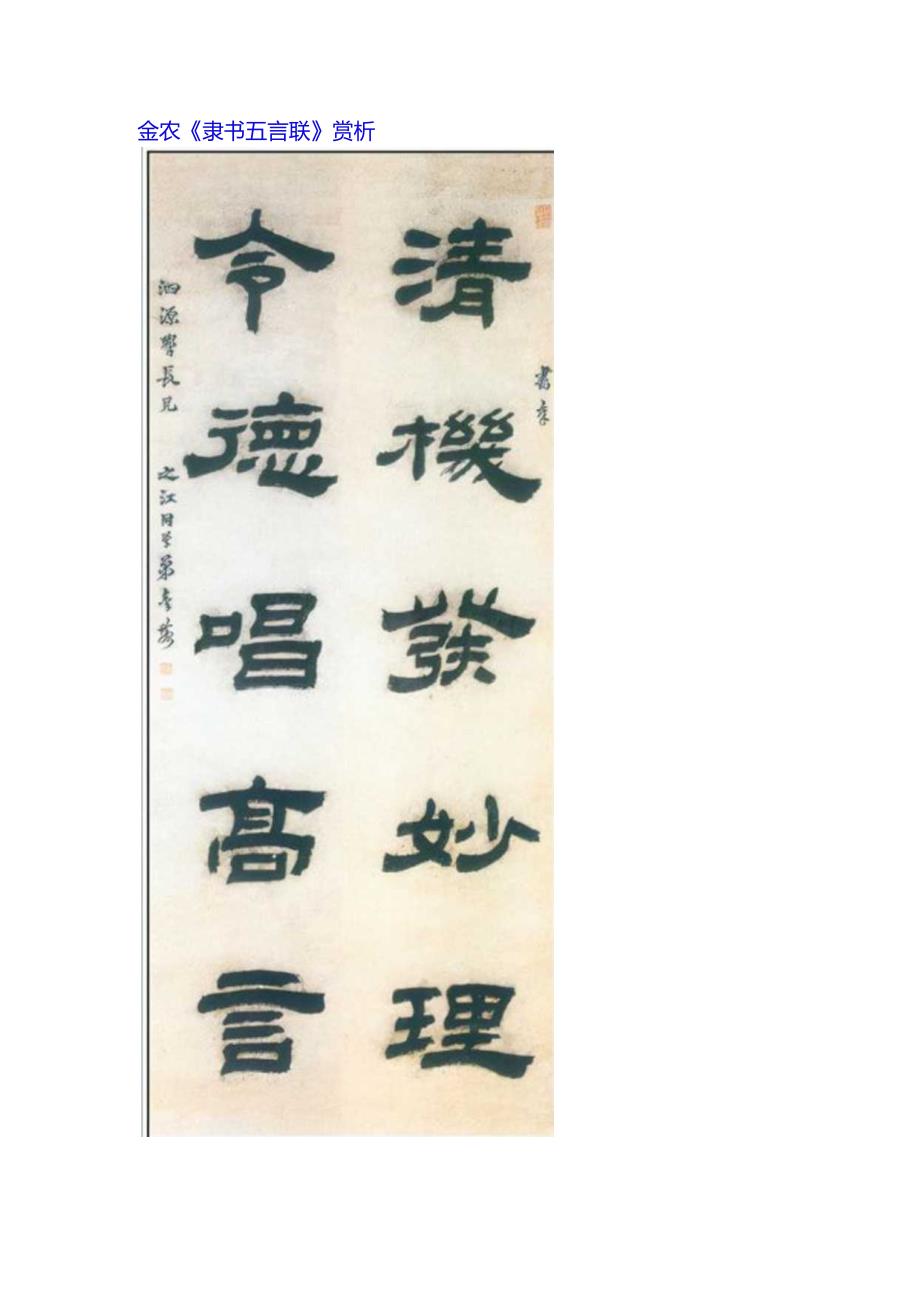 金农《隶书五言联》赏析
書奉
清機發妙理
令德唱高言
泗源學長兄
之江同學弟金農